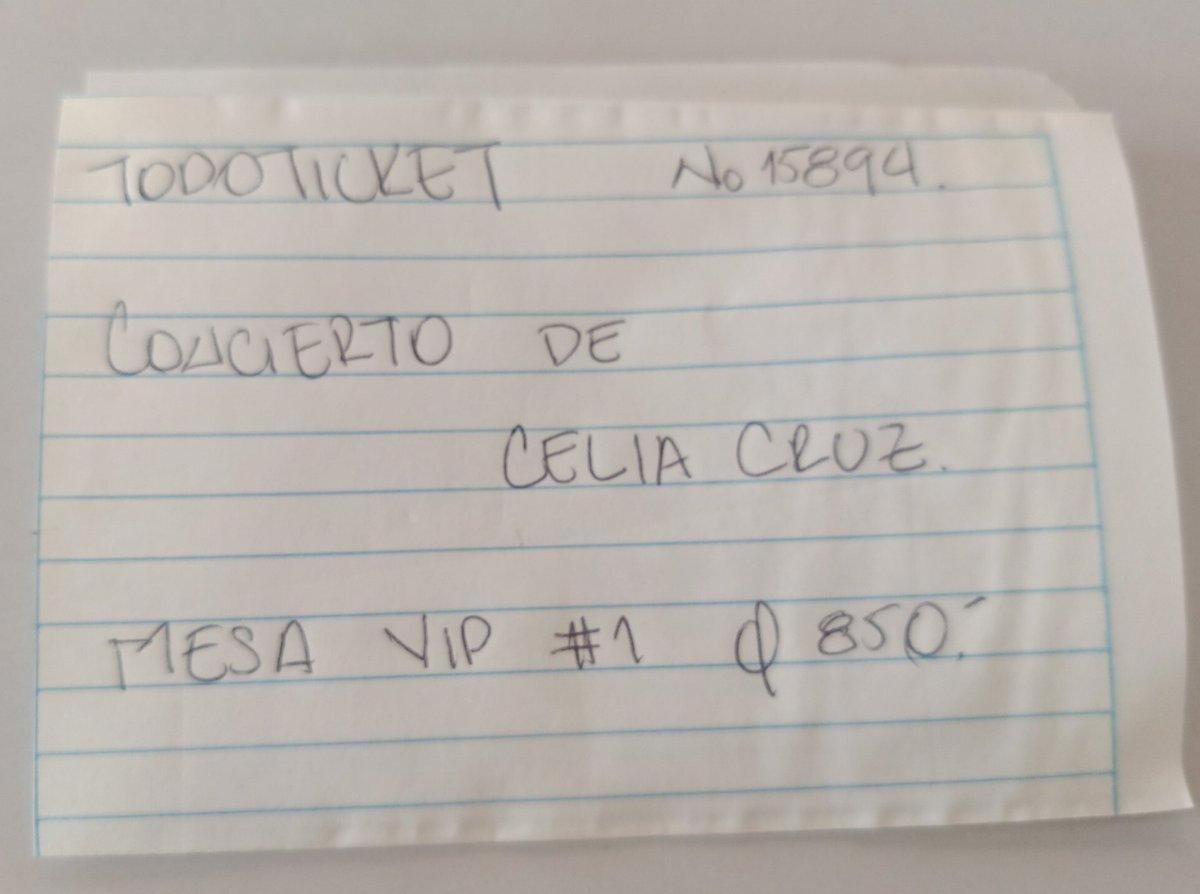 TODOTICKET No 15894.
CONCIERTO DE
CELIA CRUZ.
MESA VIP #1 Q 850.-